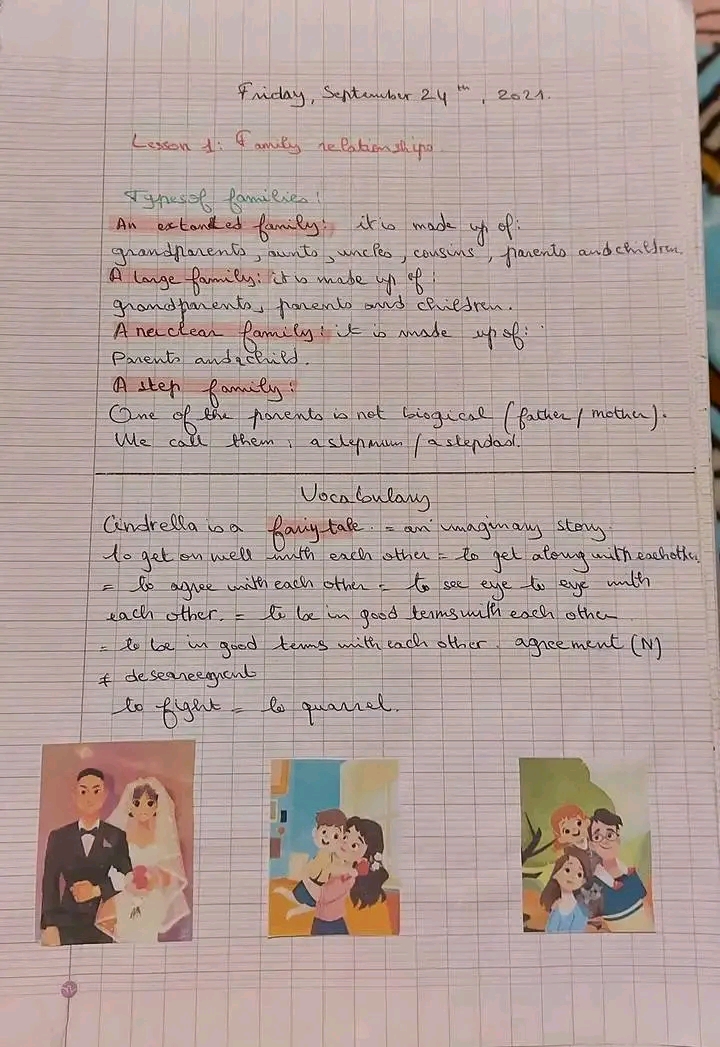 Friday, September 24th, 2021.
Lesson 1: Family relationships
Types of families:
An extanded family: it is made up of:
grandparents, aunts, uncles, cousins, parents and children.
A large family: it is made up of:
grandparents, parents and children.
A neiclear family: it is made up of:
Parents and child.
A step family:
One of the parents is not biogical (father / mother).
We call them: a stepmum / a stepdad.
Vocabulary
Cindrella is a fairy tale. = an imaginary story.
to get on well with each other = to get along with eachother
= to agree with each other = to see eye to eye with
each other. = to be in good terms with each other
= to be in good terms with each other. agreement (N)
≠ deseareement
to fight = to quarrel.